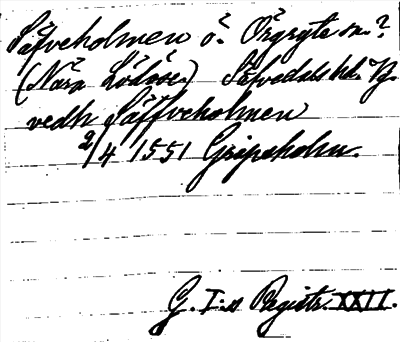 Säfveholmen ö. Örgryte sn.?
(Nära Lödöse) Säfvedals hd. Vg.
vedh Säffveholmen
2/4 1551 Gripsholm.
G. I:s Registr. XXII.